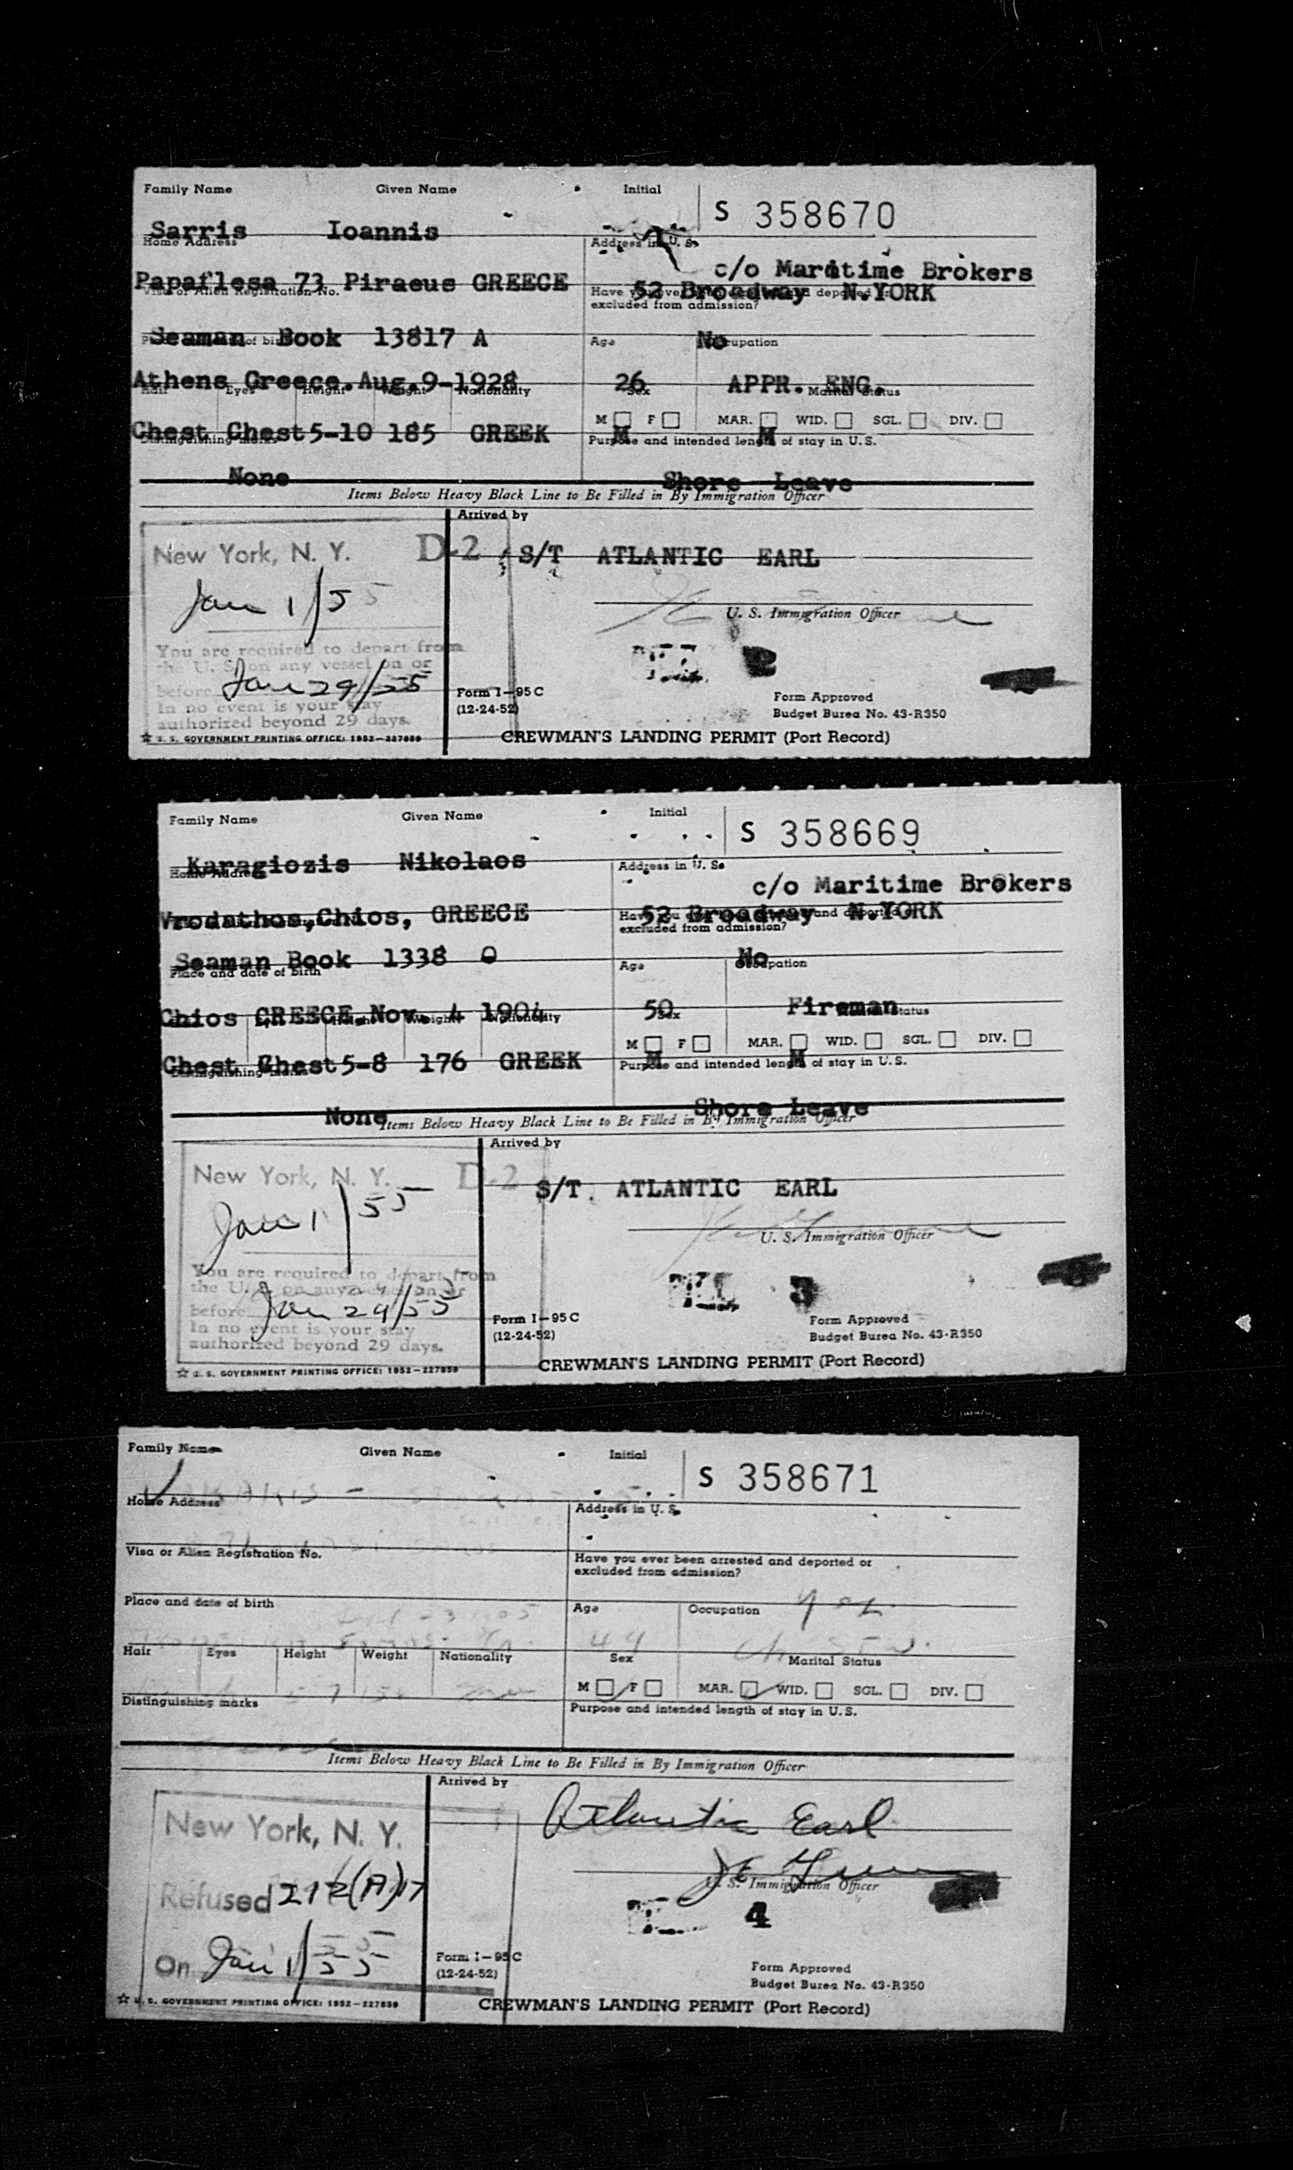 Family Name Given Name Initial
S 358670
Sarris Ioannis
Home Address
Address in U. S.
c/o Maritime Brokers
Papaflesa 73 Piraeus GREECE
52 Broadway N.YORK
Visa or Alien Registration No.
Have you ever been arrested and deported or
excluded from admission?
Seaman Book 13817 A
No
Place and date of birth
Age Occupation
Athens Greece.Aug.9-1928
26 APPR. ENG.
Hair Eyes Height Weight Nationality
Sex Marital Status
M F MAR. WID. SGL. DIV.
Chest Chest 5-10 185 GREEK
M M
Distinguishing marks
Purpose and intended length of stay in U.S.
None
Shore Leave
Items Below Heavy Black Line to Be Filled in By Immigration Officer
Arrived by
New York, N. Y. D-2
S/T ATLANTIC EARL
Jan 1/55
U. S. Immigration Officer
You are required to depart from
the U. S. on any vessel on or
before Jan 29/55
In no event is your stay
authorized beyond 29 days.
2
Form I-95C
(12-24-52)
Form Approved
Budget Burea No. 43-R350
☆ U. S. GOVERNMENT PRINTING OFFICE: 1952-227859
CREWMAN'S LANDING PERMIT (Port Record)
Family Name Given Name Initial
S 358669
Karagiozis Nikolaos
Home Address
Address in U. S.
c/o Maritime Brokers
Vrodathos,Chios, GREECE
52 Broadway N.YORK
Have you and deported
excluded from admission?
Seaman Book 1338 O
No
Place and date of birth
Age Occupation
Chios GREECE.Nov. 4 1904
50 Fireman
Height Weight Nationality
Sex Status
M F MAR. WID. SGL. DIV.
Chest Chest 5-8 176 GREEK
M M
Distinguishing marks
Purpose and intended length of stay in U.S.
None
Shore Leave
Items Below Heavy Black Line to Be Filled in By Immigration Officer
Arrived by
New York, N. Y. D-2
S/T. ATLANTIC EARL
Jan 1/55
U. S. Immigration Officer
You are required to depart from
the U. S. on any vessel on or
before Jan 29/55
In no event is your stay
authorized beyond 29 days.
3
Form I-95C
(12-24-52)
Form Approved
Budget Burea No. 43-R350
☆ U. S. GOVERNMENT PRINTING OFFICE: 1952-227859
CREWMAN'S LANDING PERMIT (Port Record)
Family Name Given Name Initial
S 358671
Home Address
Address in U. S.
Visa or Alien Registration No.
Have you ever been arrested and deported or
excluded from admission?
Place and date of birth
Age Occupation
Hair Eyes Height Weight Nationality
44
Sex Marital Status
M F MAR. WID. SGL. DIV.
Distinguishing marks
Purpose and intended length of stay in U.S.
Items Below Heavy Black Line to Be Filled in By Immigration Officer
Arrived by
Atlantic Earl
New York, N. Y.
U. S. Immigration Officer
Refused 212(A)17
4
On Jan 1/55
Form I-95C
(12-24-52)
Form Approved
Budget Burea No. 43-R350
☆ U. S. GOVERNMENT PRINTING OFFICE: 1952-227859
CREWMAN'S LANDING PERMIT (Port Record)